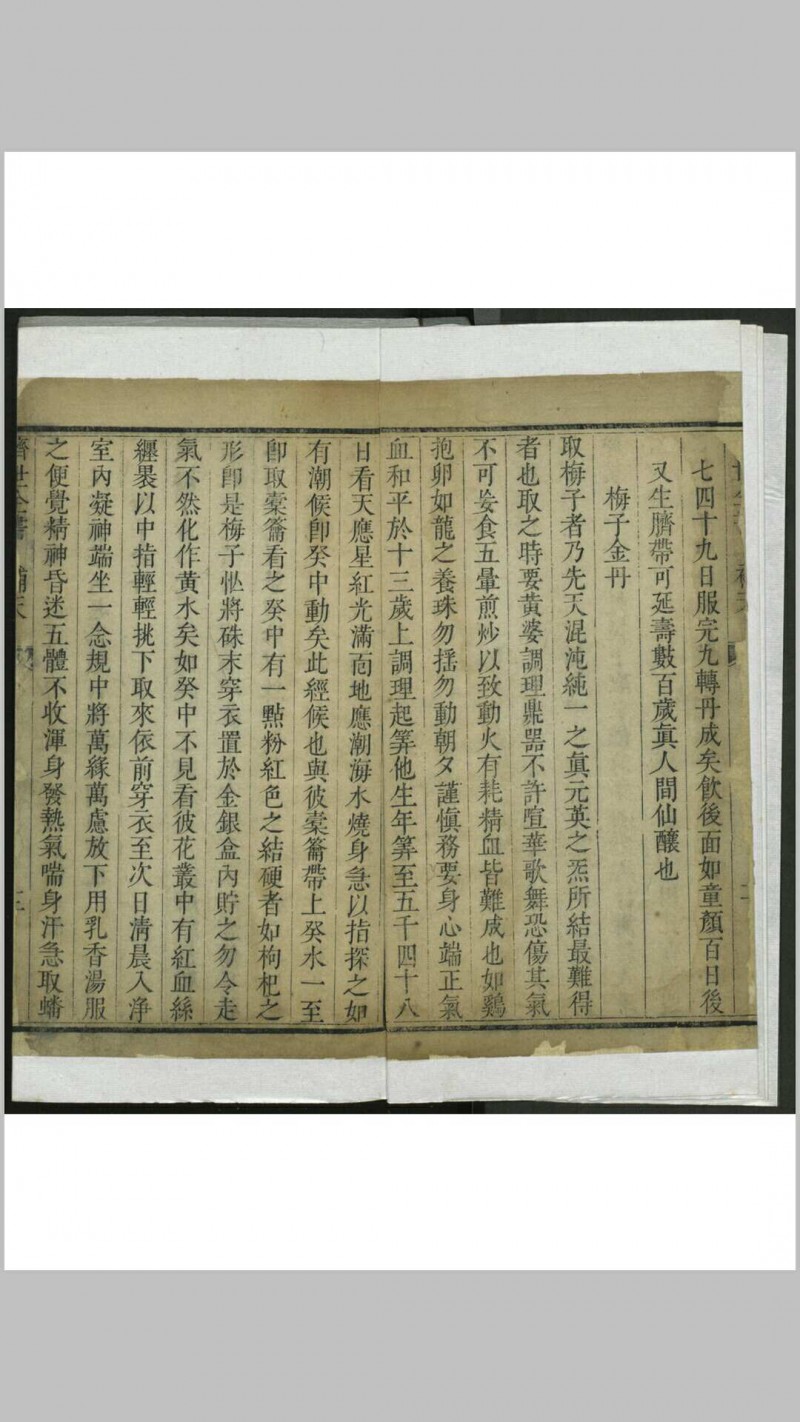 七四十九日服完九轉丹成矣飲後面如童顏百日後
又生臍帶可延壽數百歲眞人間仙釀也
梅子金丹
取梅子者乃先天混沌純一之眞元英之炁所結最難得
者也取之時要黃婆調理鼎器不許喧華歌舞恐傷其氣
不可妄食五暈煎炒以致動火有耗精血皆難成也如鷄
抱卵如龍之養珠勿揺勿動朝夕謹愼務要身心端正氣
血和平於十三歲上調理起筭他生年筭至五千四十八
日看天應星紅光滿面地應潮海水燒身急以指探之如
有潮候卽癸中動矣此經候也與彼槖籥帶上癸水一至
卽取槖籥看之癸中有一點粉紅色之結硬者如枸杞之
形卽是梅子也將硃末穿衣置於金銀盒內貯之勿令走
氣不然化作黃水矣如癸中不見看彼花叢中有紅血絲
纒褁以中指輕輕挑下取來依前穿衣至次日淸晨入淨
室內凝神端坐一念規中將萬緣萬慮放下用乳香湯服
之便覺精神昏迷五體不收渾身發熱氣喘身汗急取蟠
濟世全書 補天